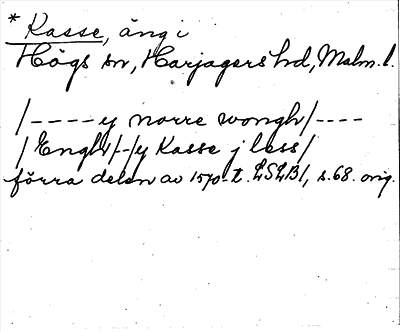 * Kasse, äng i
Högs sn, Harjagers hd, Malm. l.
/----y norre wongh/----
/Engh/--/y Kasse j less/
förra delen av 1570-t. LSLB1, s. 68. orig.